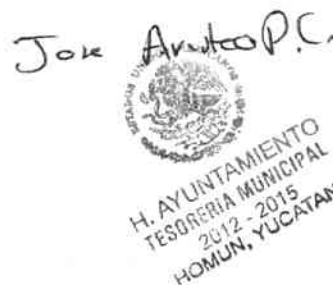 Jose P.C.
ESTADOS UNIDOS MEXICANOS
H. AYUNTAMIENTO
TESORERIA MUNICIPAL
2012 - 2015
HOMUN, YUCATAN